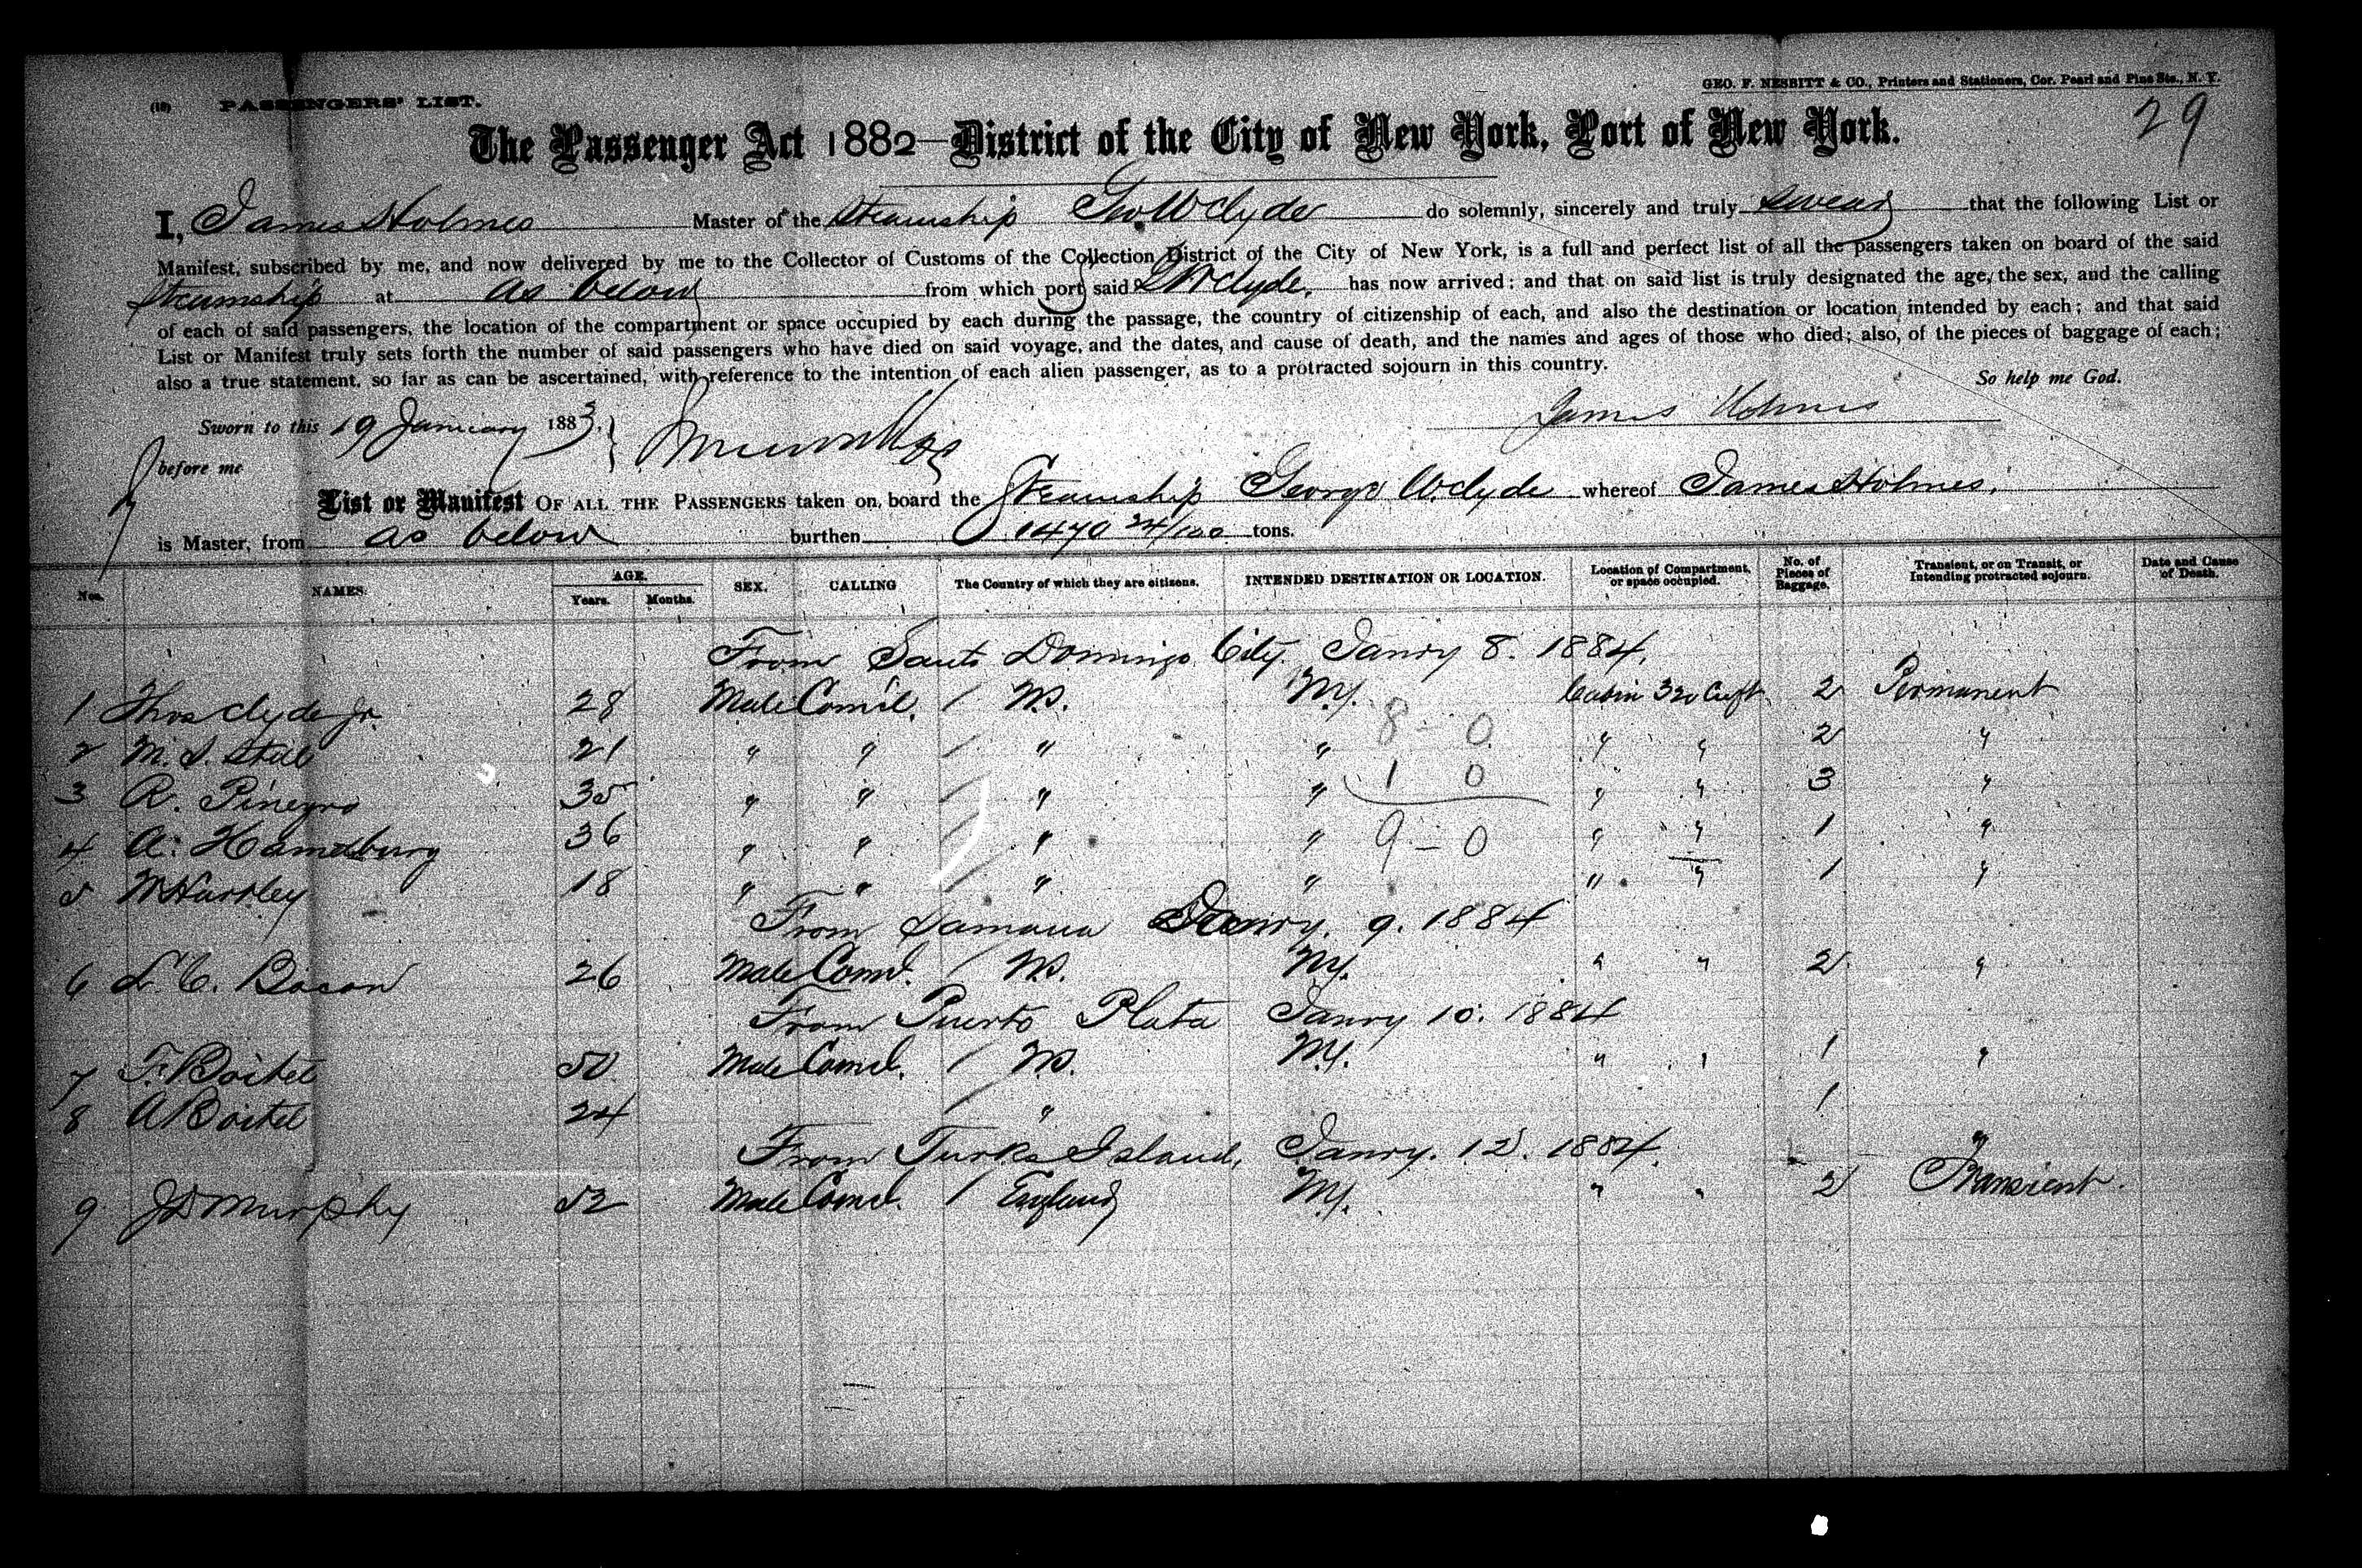 GEO. F. NESBITT & CO., Printers and Stationers, Cor. Pearl and Pine Sts., N. Y.
(18) PASSENGERS' LIST.
29
The Passenger Act 1882—District of the City of New York, Port of New York.
I, James Holmes Master of the Steamship Geo W Clyde do solemnly, sincerely and truly swear that the following List or
Manifest, subscribed by me, and now delivered by me to the Collector of Customs of the Collection District of the City of New York, is a full and perfect list of all the passengers taken on board of the said
Steamship at as below from which port said G W Clyde. has now arrived; and that on said list is truly designated the age, the sex, and the calling
of each of said passengers, the location of the compartment or space occupied by each during the passage, the country of citizenship of each, and also the destination or location intended by each; and that said
List or Manifest truly sets forth the number of said passengers who have died on said voyage, and the dates, and cause of death, and the names and ages of those who died; also, of the pieces of baggage of each;
also a true statement, so far as can be ascertained, with reference to the intention of each alien passenger, as to a protracted sojourn in this country. So help me God.
Sworn to this 19 January 1883. James Holmes
before me
List or Manifest OF ALL THE PASSENGERS taken on board the Steamship George W. Clyde whereof James Holmes.
is Master, from as below burthen 1470 24/100 tons.
Nos. NAMES. AGE. Years. Months. SEX. CALLING The Country of which they are citizens. INTENDED DESTINATION OR LOCATION. Location of Compartment, or space occupied. No. of Pieces of Baggage. Transient, or on Transit, or Intending protracted sojourn. Date and Cause of Death.
From Santo Domingo City. Janry 8. 1884.
1 Thos Clyde Jr. 28 Male Comil. / U.S. N.Y. Cabin 320 Cuft 2 Permanent
2 M. S. 21 " " / " " 8 - 0 " " 2 "
3 R. Pineyro 35 " " / " " 1 0 " " 3 "
4 A. 36 " " / " " 9 - 0 " " 1 "
5 18 " " / " " " " 1 "
From Samana Janry. 9. 1884
6 L. C. Bacon 26 Male Comil. / U.S. N.Y. " " 2 "
From Puerto Plata Janry 10. 1884
7 F. Boitel 50 Male Comil. / U.S. N.Y. " " 1 "
8 A Boitel 24 / " 1 "
From Turks Island, Janry. 12. 1884.
9 J D Murphy 52 Male Comil. / England N.Y. " " 2 Transient.